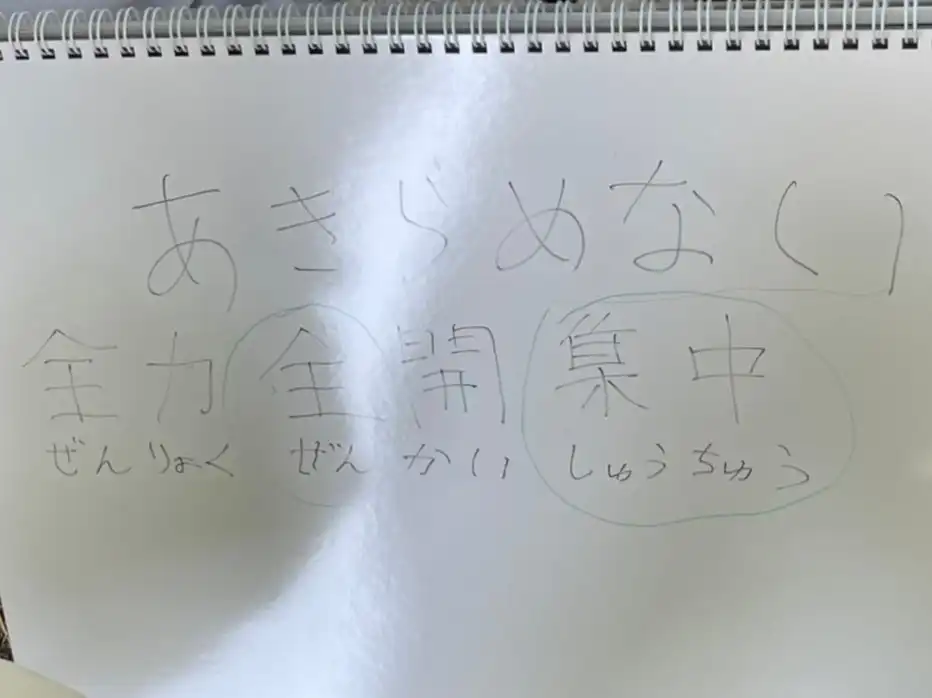 あきらめない
全力全開集中
ぜんりょくぜんかいしゅうちゅう